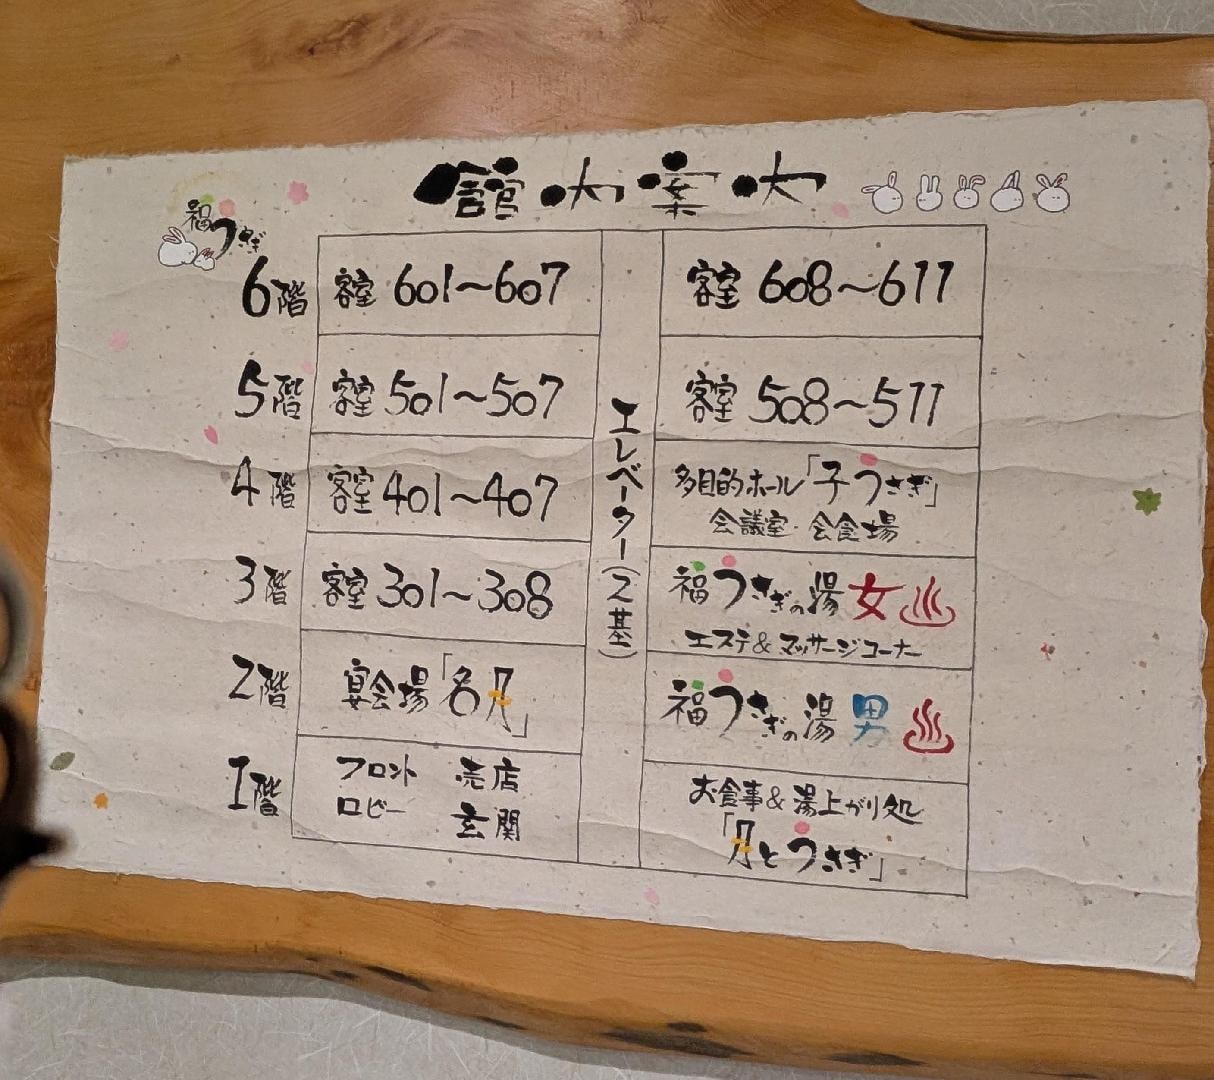 館内案内
福うさぎ
6階 客室 601～607 客室 608～611
5階 客室 501～507 客室 508～511
4階 客室 401～407 多目的ホール「子うさぎ」
会議室・会食場
3階 客室 301～308 福うさぎの湯 女 ♨
エステ&マッサージコーナー
2階 宴会場「名月」 福うさぎの湯 男 ♨
1階 フロント 売店 お食事&湯上がり処
ロビー 玄関 「月とうさぎ」
エレベーター(2基)